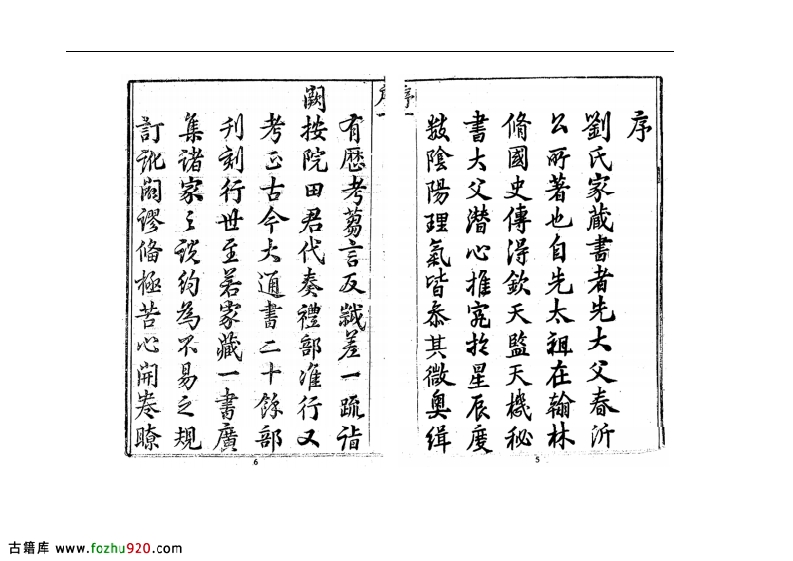 序
劉氏家藏書者先大父春沂
公所著也自先太祖在翰林
脩國史傳得欽天監天機秘
書大父潛心推究於星辰度
数陰陽理氣皆叅其微奧緝
序
有歷考蒭言反鍼差一疏詣
闕按院田君代奏禮部准行又
考正古今大通書二十餘部
刊刻行世至若家藏一書廣
集諸家之說約為不易之規
訂訛闢謬脩極苦心開卷瞭
5
6
古籍库 www.fozhu920.com